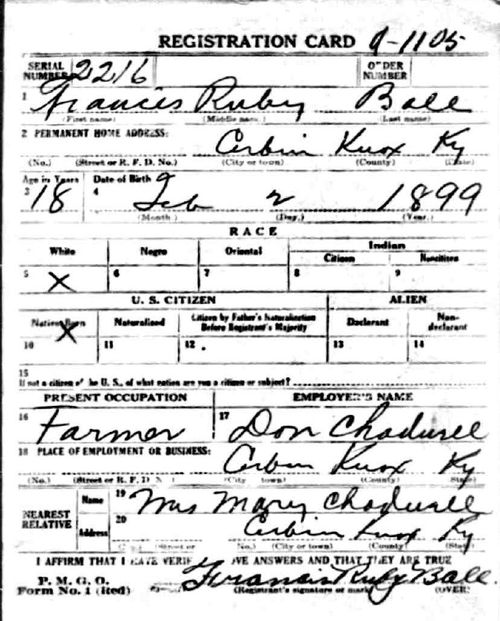 REGISTRATION CARD 9-1105
SERIAL NUMBER 2216 ORDER NUMBER
1 Francis Ruby Ball
(First name) (Middle name) (Last name)
2 PERMANENT HOME ADDRESS:
Corbin Knox Ky
(No.) (Street or R. F. D. No.) (City or town) (County) (State)
Age in Years Date of Birth
3 18 4 Feb 2 1899
(Month) (Day.) (Year.)
RACE
White Negro Oriental Indian
Citizen Noncitizen
5 X 6 7 8 9
U. S. CITIZEN ALIEN
Native Born Naturalized Citizen by Father's Naturalization Before Registrant's Majority Declarant Non-declarant
10 X 11 12 13 14
15
If not a citizen of the U. S., of what nation are you a citizen or subject?
PRESENT OCCUPATION EMPLOYER'S NAME
16 Farmer 17 Don Chadwell
18 PLACE OF EMPLOYMENT OR BUSINESS:
Corbin Knox Ky
(No.) (Street or R. F. D. No.) (City or town) (County) (State)
NEAREST RELATIVE Name 19 Mrs Mary Chadwell
Address 20 Corbin Knox Ky
(No.) (City or town) (County) (State)
I AFFIRM THAT I HAVE VERIF VE ANSWERS AND THAT THEY ARE TRUE
P. M. G. O.
Form No. 1 (Red) Francis Ruby Ball
(Registrant's signature or mark) (OVER)